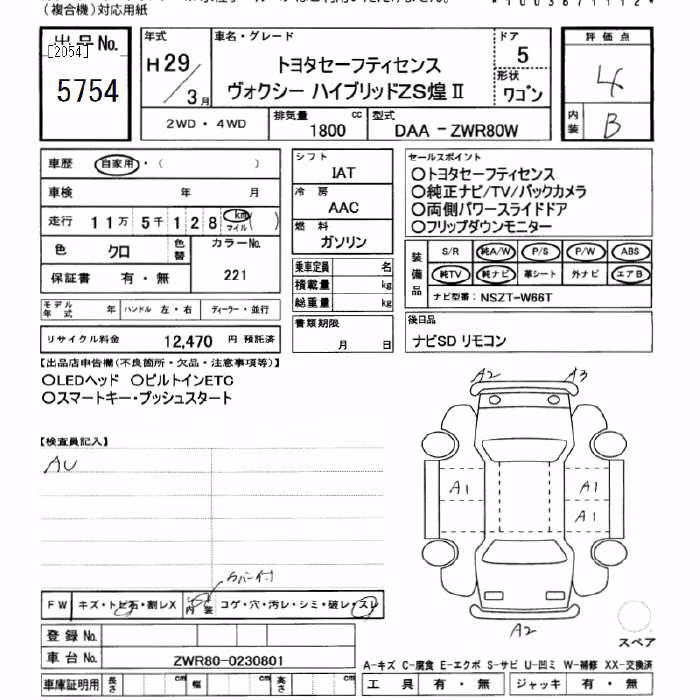 (複合機)対応用紙
出品No.
[2054]
5754
年式
H29/3月
車名・グレード
トヨタセーフティセンス
ヴォクシー ハイブリッドZS煌Ⅱ
ドア
5
形状
ワゴン
評価点
4
内装
B
2WD・4WD
排気量
1800
cc
型式
DAA－ZWR80W
車歴
自家用・( )
車検 年 月
走行 11万5千128 km マイル ( )
色 クロ
色替
カラーNo.
221
保証書 有・無
シフト
IAT
冷房
AAC
燃料
ガソリン
乗車定員 名
積載量 kg
総重量 kg
セールスポイント
○トヨタセーフティセンス
○純正ナビ/TV/バックカメラ
○両側パワースライドドア
○フリップダウンモニター
装備品
S/R 純A/W P/S P/W ABS
純TV 純ナビ 革シート 外ナビ エアB
ナビ型番: NSZT-W66T
モデル年式 年 ハンドル 左・右 ディーラー・並行
リサイクル料金 12,470 円 預託済
書類期限
月 日
後日品
ナビSD リモコン
【出品店申告欄(不良箇所・欠品・注意事項等)】
○LEDヘッド ○ビルトインETC
○スマートキー・プッシュスタート
【検査員記入】
AU
A2 A3
A1 A1
A1
A2
スペア
FW キズ・トビ石・割レX 内装 コゲ・穴・汚レ・シミ・破レ・スレ
登録No.
車台No. ZWR80-0230801
車庫証明用 長さ cm 幅 cm 高さ cm
A-キズ C-腐食 E-エクボ S-サビ U-凹ミ W-補修 XX-交換済
工具 有・無 ジャッキ 有・無